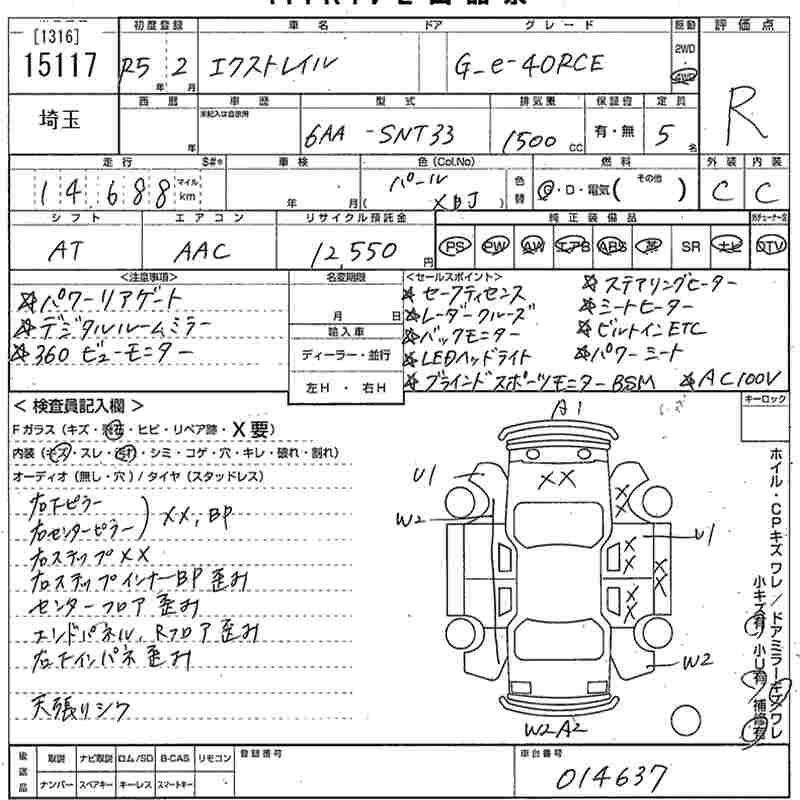 [1316]
15117
初度登録 車名 ドア グレード 駆動 評価点
R5年 2月 エクストレイル G-e-4ORCE 2WD 4WD R
埼玉
西暦 車歴 型式 排気量 保証書 定員
年 未記入は自家用 6AA -SNT33 1500cc 有・無 5名
走行 $#* 車検 色(Col.No) 燃料 外装 内装
14,688 マイル km 年 月 パール (XBJ) 色替 G・D・電気( その他 ) C C
シフト エアコン リサイクル預託金 純正装備品
AT AAC 12,550円 PS PW AW エアB ABS 革 SR ナビ DTV
<注意事項> 名変期限 <セールスポイント>
☆パワーリアゲート
☆デジタルルームミラー
☆360 ビューモニター
月 日
輸入車
ディーラー・並行
左H ・ 右H
☆セーフティセンス ☆ステアリングヒーター
☆レーダークルーズ ☆シートヒーター
☆バックモニター ☆ビルトインETC
☆LEDヘッドライト ☆パワーシート
☆ブラインドスポーツモニターBSM ☆AC100V
< 検査員記入欄 >
キーロック
Fガラス(キズ・飛石・ヒビ・リペア跡・X要)
内装(キズ・スレ・汚れ・シミ・コゲ・穴・キレ・破れ・割れ)
オーディオ(無し・穴)/タイヤ(スタッドレス)
右Fピラー
右センターピラー ) XX, BP
右ステップXX
右ステップインナーBP歪み
センターフロア歪み
エンドパネル、Rフロア歪み
右Fインパネ歪み
天張りシワ
A1
U1
XX
W2
XX
U1
XX
XX
XX
W2
W2A2
ホイル・CPキズ ワレ/ドアミラーキズ/ワレ
小キズ有/小U有/補修有
後送品 取説 ナビ取説 ロム/SD B-CAS リモコン 登録番号 車台番号
ナンバー スペアキー キーレス スマートキー 014637